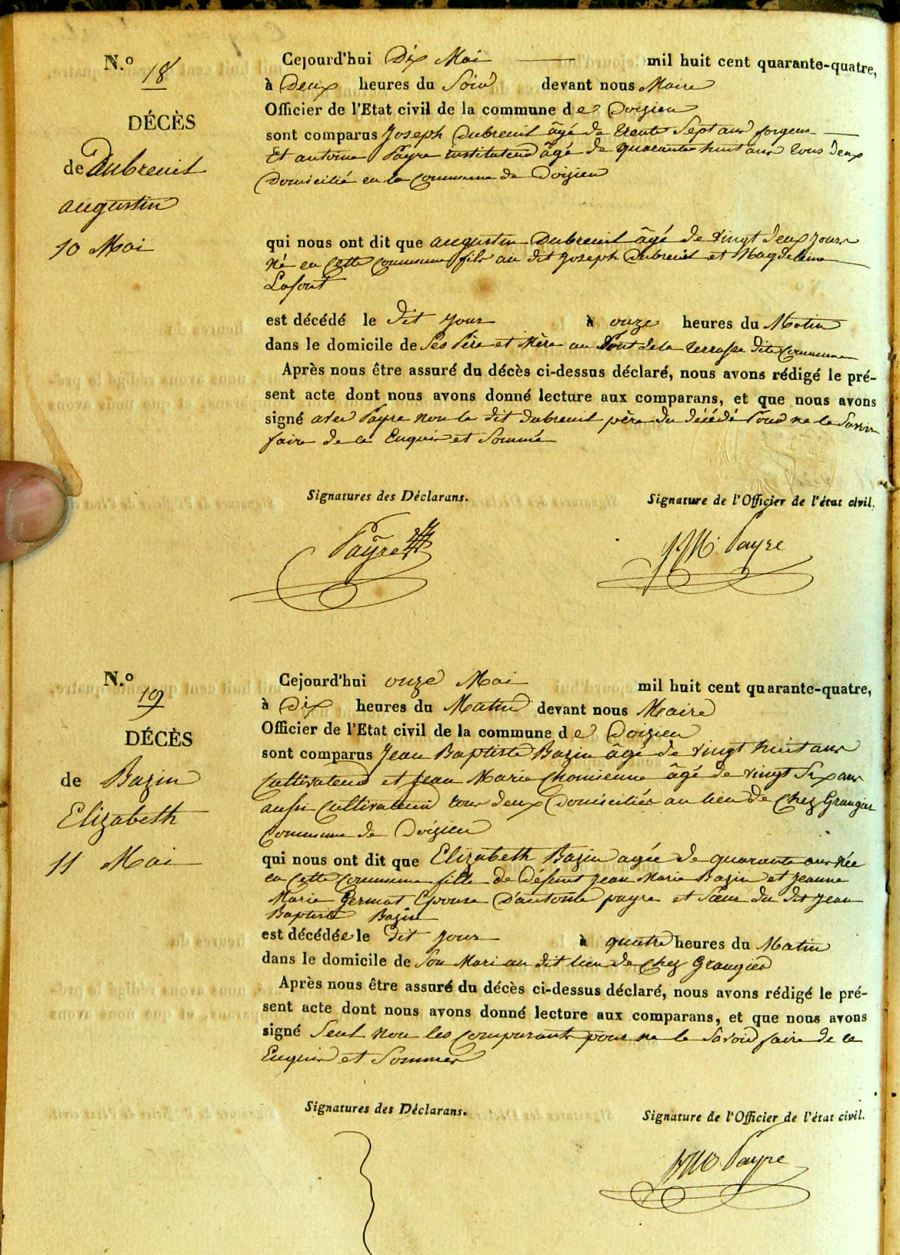 N.º 18
DÉCÈS
de Dubreuil
augustin
10 Mai
Cejourd'hui Dix Mai mil huit cent quarante-quatre,
à Deux heures du Soir devant nous Maire
Officier de l'Etat civil de la commune de Doizieu
sont comparus Joseph Dubreuil âgé de trente Sept ans forgeur
Et antoine Payre instituteur âgé de quarante huit ans tous deux
Domicilié en la Commune de Doizieu
qui nous ont dit que augustin Dubreuil âgé de vingt deux jours
Né en cette Commune fils au dit Joseph Dubreuil et Magdeleine
Lafont
est décédé le dit jour à onze heures du Matin
dans le domicile de Ses Père et Mère au Pont de la terrasse dite Commune
Après nous être assuré du décès ci-dessus déclaré, nous avons rédigé le pré-
sent acte dont nous avons donné lecture aux comparans, et que nous avons
signé avec Payre non le dit Dubreuil père du décédé Pour ne le Savoir
faire de ce Enquis et Sommé
Signatures des Déclarans.
Signature de l'Officier de l'état civil.
Payre
JM. Payre
N.º 19
DÉCÈS
de Bazin
Elizabeth
11 Mai
Cejourd'hui onze Mai mil huit cent quarante-quatre,
à Dix heures du Matin devant nous Maire
Officier de l'Etat civil de la commune de Doizieu
sont comparus Jean Baptiste Bazin âgé de vingt huit ans
Cultivateur et Jean Marie Chomienne âgé de vingt Six ans
aussi Cultivateur tous deux Domiciliés au lieu de Chez Grangier
Commune de Doizieu
qui nous ont dit que Elizabeth Bazin agée de quarante ans Née
en cette Commune fille de Défunt Jean Marie Bazin et Jeanne
Marie Germat Epouse D'antoine payre et Sœur du dit Jean
Baptiste Bazin
est décédée le dit jour à quatre heures du Matin
dans le domicile de Son Mari au dit lieu de Chez Grangier
Après nous être assuré du décès ci-dessus déclaré, nous avons rédigé le pré-
sent acte dont nous avons donné lecture aux comparans, et que nous avons
signé Seul non les comparants pour ne le Savoir faire de ce
Enquis et Sommés
Signatures des Déclarans.
Signature de l'Officier de l'état civil.
JM Payre